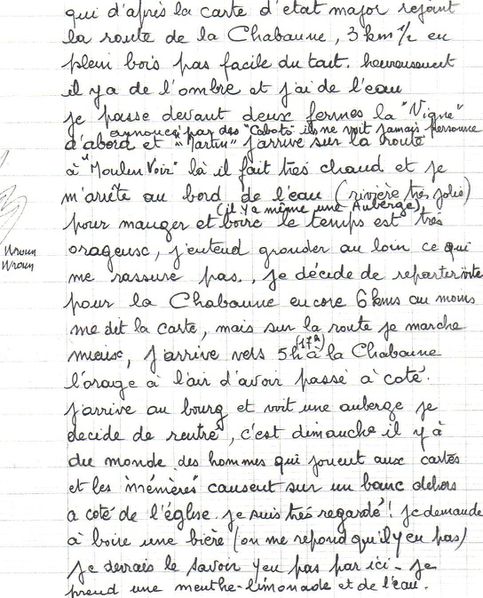 qui d'après la carte d'état major rejoint
la route de la Chabanne, 3 km 1/2 en
plein bois pas facile du tait. heureusement
il y a de l'ombre et j'ai de l'eau
je passe devant deux fermes la "Vigne"
aynoncé par des "Cabots" ils ne voit jamais personne
d'abord et "Martin" j'arrive sur la route
à "Moulin Voir" là il fait très chaud et je
m'arrête au bord de l'eau (rivière très jolie)
(il y a même une Auberge)
pour manger et boire le temps est très
orageuse, j'entend gronder au loin ce qui
Wroun
Wroun
me rassure pas. je décide de reparter vite
pour la Chabanne encore 6 kms au moins
me dit la carte, mais sur la route je marche
mieux, j'arrive vers 5h (17h) à la Chabanne
l'orage à l'air d'avoir passé à coté.
j'arrive au bourg et voit une auberge je
decide de rentré, c'est dimanche il y à
du monde des hommes qui jouent aux cartes
et les "mémères" causent sur un banc dehors
a coté de l'église. je suis très regardé! je demande
à boire une bière (on me repond qu'il y en pas)
je devrais le savoir yen pas par ici - je
prend une menthe-limonade et de l'eau.